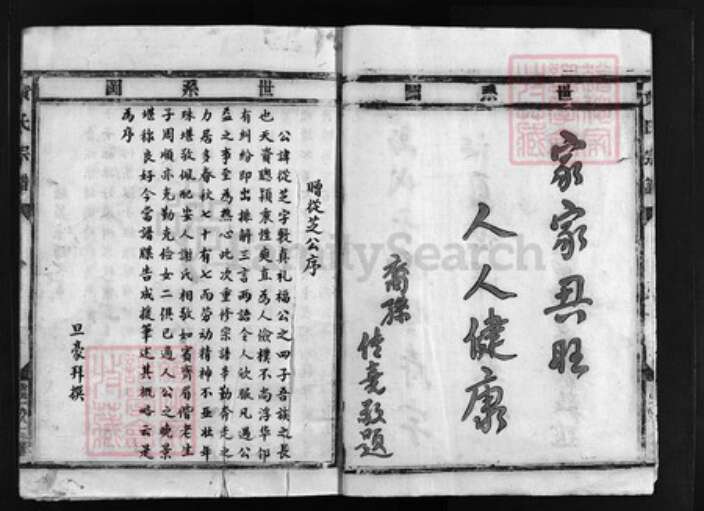 世系圖
家家興旺
人人健康
裔孫 佐堯敬題
世系圖
贈從芝公序
公諱從芝字毅真礼福公之四子吾族之長
也天資聰穎稟性爽直為人儉樸不尚浮华鄰
有糾紛即出排解三言兩語令人欽服凡遇公
益之事至為熱心此次重修宗譜辛勤奔走之
力居多春秋七十有七而劳动精神不亚壮年
殊堪敬佩配安人謝氏相敬如賓齊眉偕老生
子周順亦克勤克儉女二俱已適人公之晚景
堪称良好今當譜牒告成援筆述其概略云是
為序
旦豪拜撰
氏宗譜
MyHeritageSearch